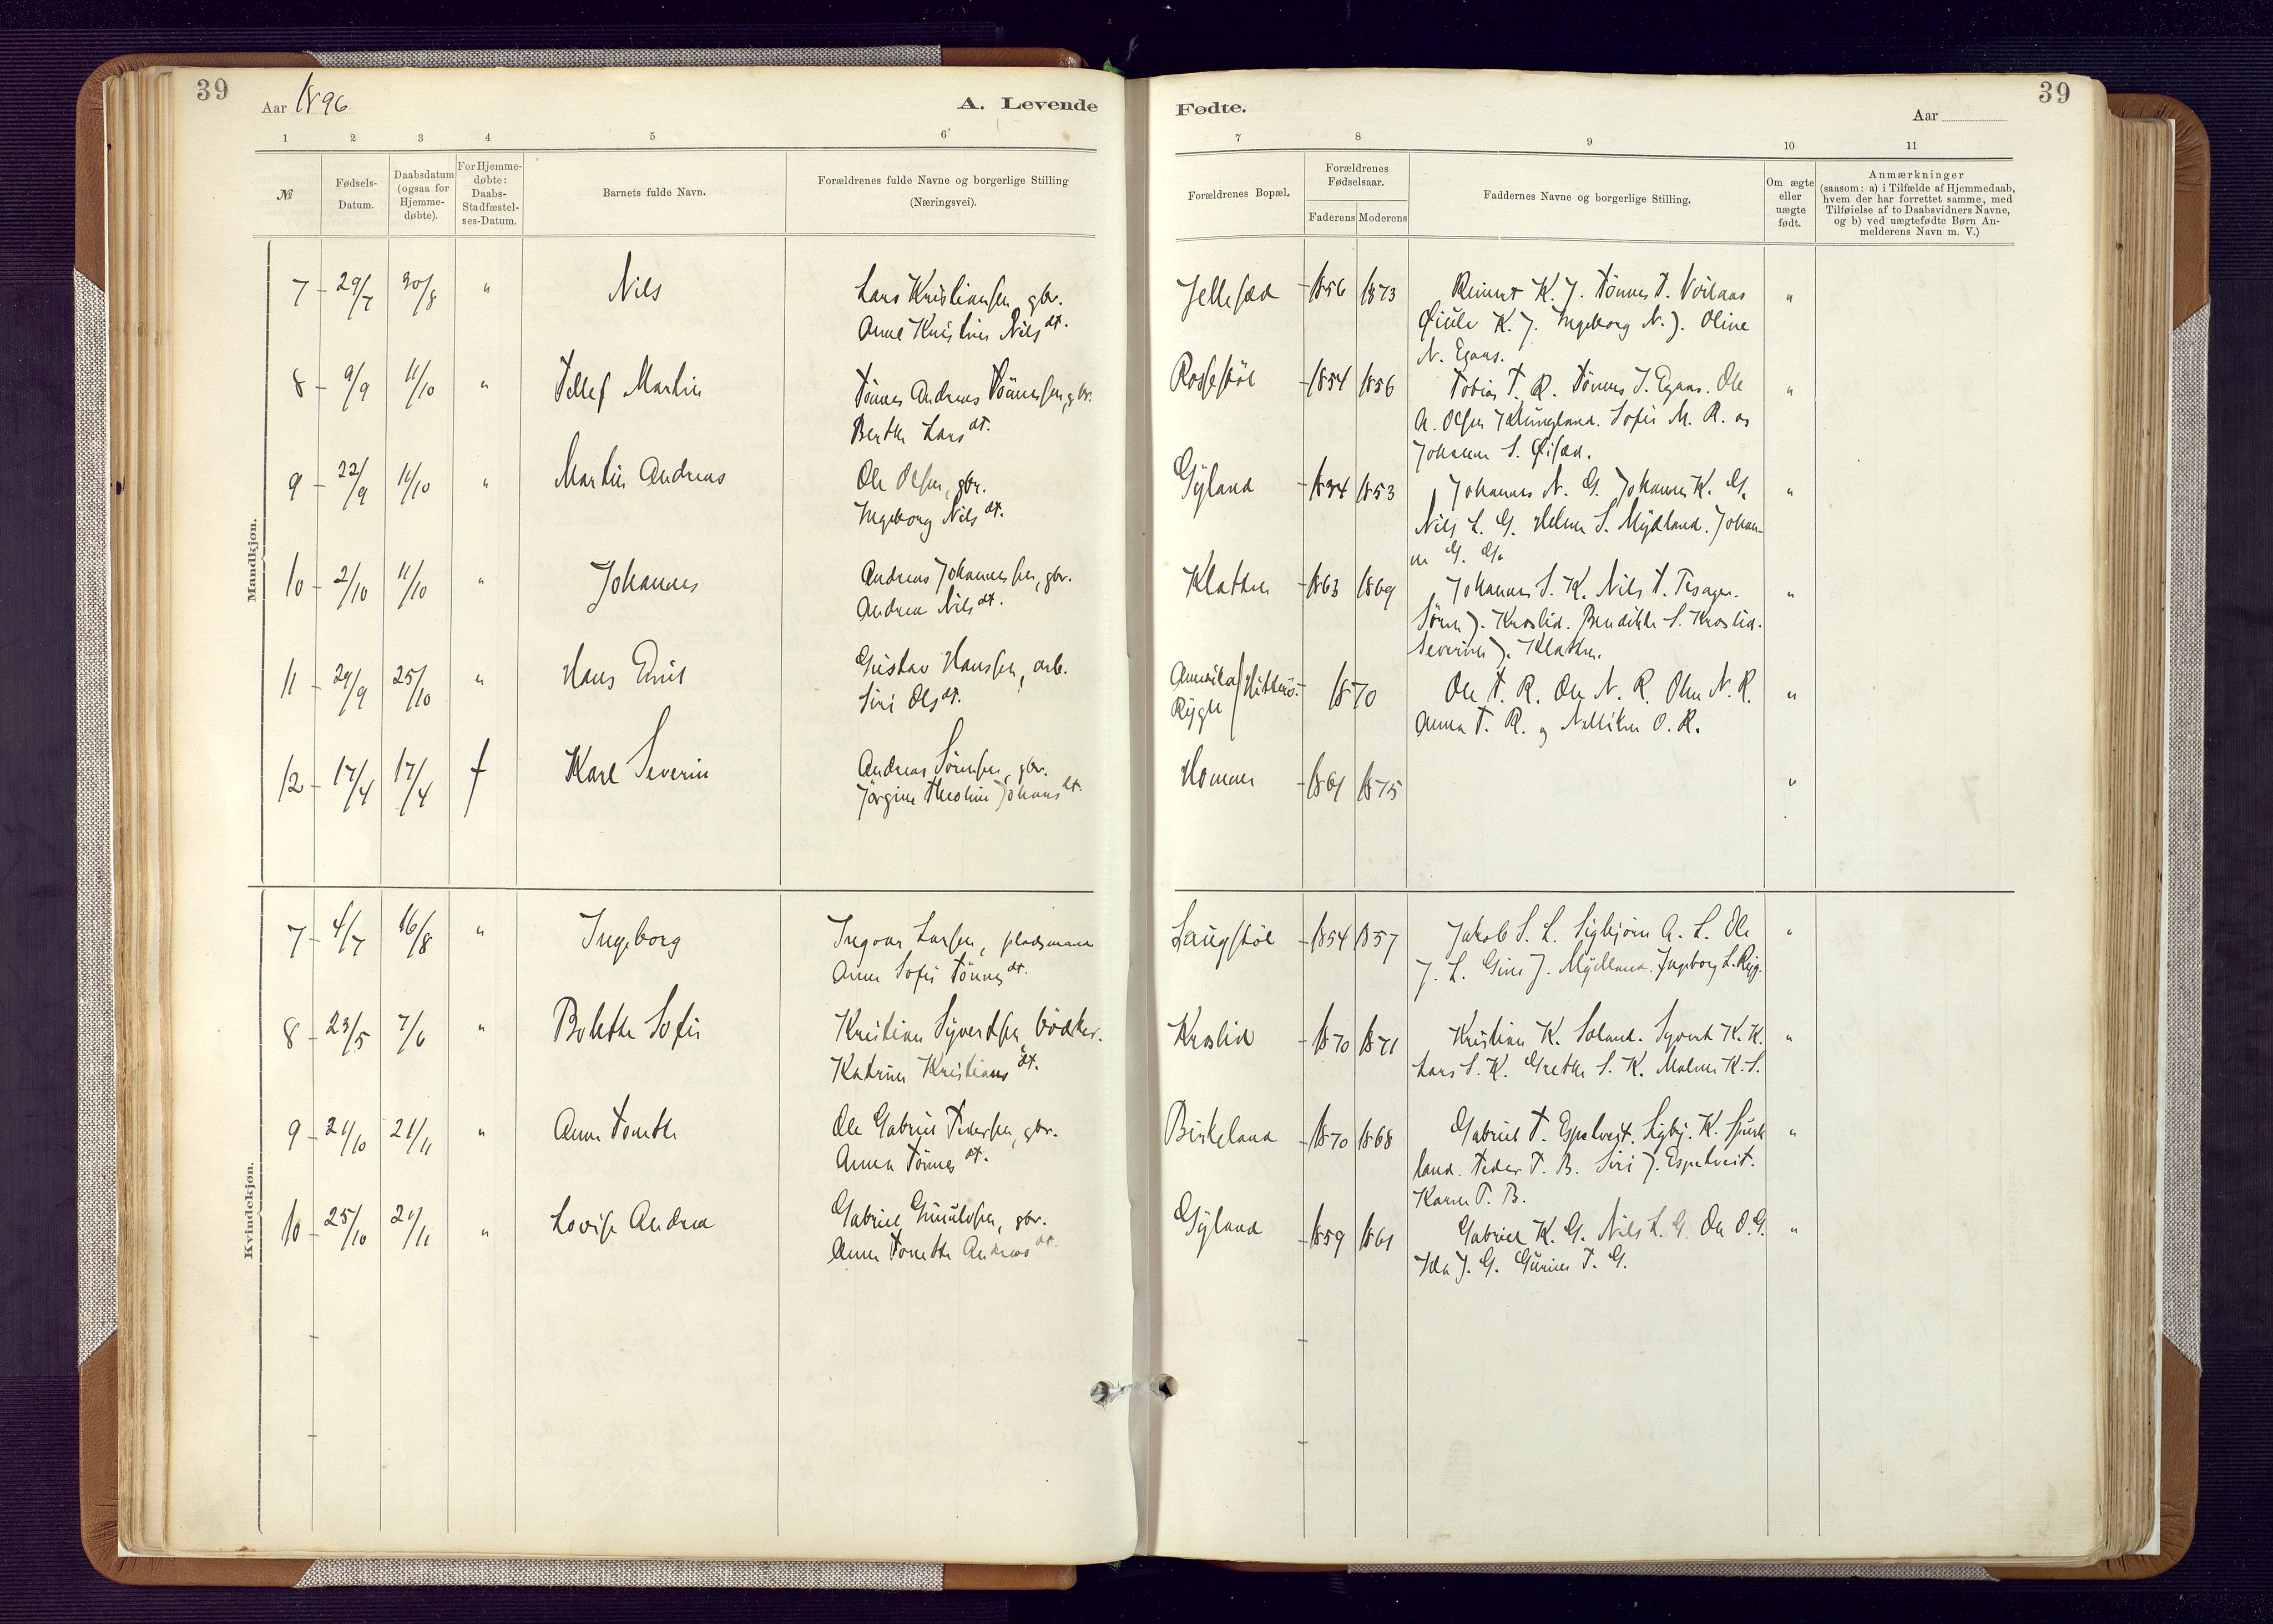 39
Aar 1896
A. Levende
1 2 3 4 5 6
№
Fødsels-
Datum.
Daabsdatum
(ogsaa for
Hjemme-
døbte).
For Hjemme-
døbte:
Daabs-
Stadfæstel-
ses-Datum.
Barnets fulde Navn.
Forældrenes fulde Navne og borgerlige Stilling
(Næringsvei).
Mandkjøn.
7 29/7 30/8 " Nils Lars Kristiansen, gbr.
Anne Kristine Nilsdt.
8 9/9 11/10 " Tellef Martin Tönnes Andreas Tönnessen, gbr.
Berthe Larsdt.
9 22/9 11/10 " Martin Andreas Ole Olsen, gbr.
Ingeborg Nilsdt.
10 2/10 11/10 " Johannes Andreas Johannessen, gbr.
Andrea Nilsdt.
11 29/9 25/10 " Hans Emil Gustav Hanssen, arb.
Siri Olsdt.
12 17/4 17/4 † Karl Severin Andreas Sörensen, gbr.
Jörgine Theoline Johansdt.
Kvindekjøn.
7 4/7 16/8 " Ingeborg Ingvar Larsen, pladsmand
Anne Sofie Tönnesdt.
8 23/5 7/6 " Bolette Sofie Kristian Syvertsen, bödker.
Katrine Kristiansdt.
9 21/10 21/11 " Anne Tonette Ole Gabriel Pedersen, gbr.
Anna Tönnesdt.
10 25/10 21/11 " Lovise Andrea Gabriel Gunuldsen, gbr.
Anne Tonette Andreasdt.
39
Fødte.
Aar
7 8 9 10 11
Forældrenes Bopæl.
Forældrenes
Fødselsaar.
Faderens Moderens
Faddernes Navne og borgerlige Stilling.
Om ægte
eller
uægte
født.
Anmærkninger
(saasom: a) i Tilfælde af Hjemmedaab,
hvem der har forrettet samme, med
Tilføielse af to Daabsvidners Navne,
og b) ved uægtefødte Børn An-
melderens Navn m. V.)
Jellesæd 1856 1873 Reinert K. J. Tönnes T. "
K. J. Ingeborg N. J. Oline
N. Egaas.
Rossestöl 1854 1856 Tobias T. R. Tönnes J. Egaas. Ole "
A. Olsen Sofie M. R. og
Johanne S. Öisæd.
Gyland 1834 1853 Johannes N. G. Johannes K. G. "
Nils L. G. Helene S. Mydland. Johan-
ne G. G.
Klathei 1863 1869 Johannes S. K. Nils T. Tesager. "
Sören J. Kroslid. Bendikte S. Kroslid.
Severine J. Klathei.
Hitterö. 1870 Ole T. R. Ole N. R. Oline N. R. "
Anna T. R. og O. R.
Homme 1861 1875 "
Laugstöl 1854 1857 Jakob S. L. Sigbjörn A. L. Ole "
J. L. Siri J. Mydland. Ingeborg L. Ryg.
Kroslid 1870 1871 Kristian K. Soland. Syvert K. K. "
Lars S. K. Grethe S. K. Malene K. S.
Birkeland 1870 1868 Gabriel T. Espetveit. Sigbj. K. Spirk- "
land. Peder P. B. Siri J. Espetveit.
Karen P. B.
Gyland 1859 1861 Gabriel K. G. Nils L. G. Ole O. G. "
Ida J. G. Gurine T. G.